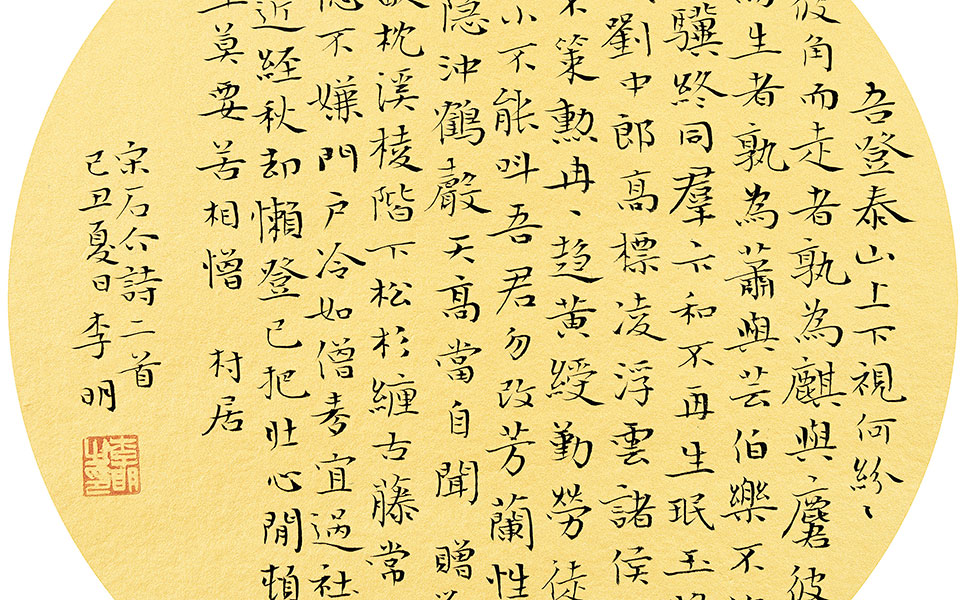 吾登泰山上下視何紛〻
彼角而走者孰為麒與〻麏彼
而生者孰為蕭與芸伯樂不
驥終同羣卞和不再生珉玉
劉中郎高標凌浮雲諸侯
策勲冉〻趨黃綬勤勞徒
小不能叫吾君勿改芳蘭性
隐沖鶴聲天高當自聞 贈
枕溪棱階下松杉纏古藤常
不嫌門戶冷如僧春宜過社
近経秋却懶登已把壯心閒頓
莫要苦相憎 村居
宋石介詩二首
己丑夏日 李明